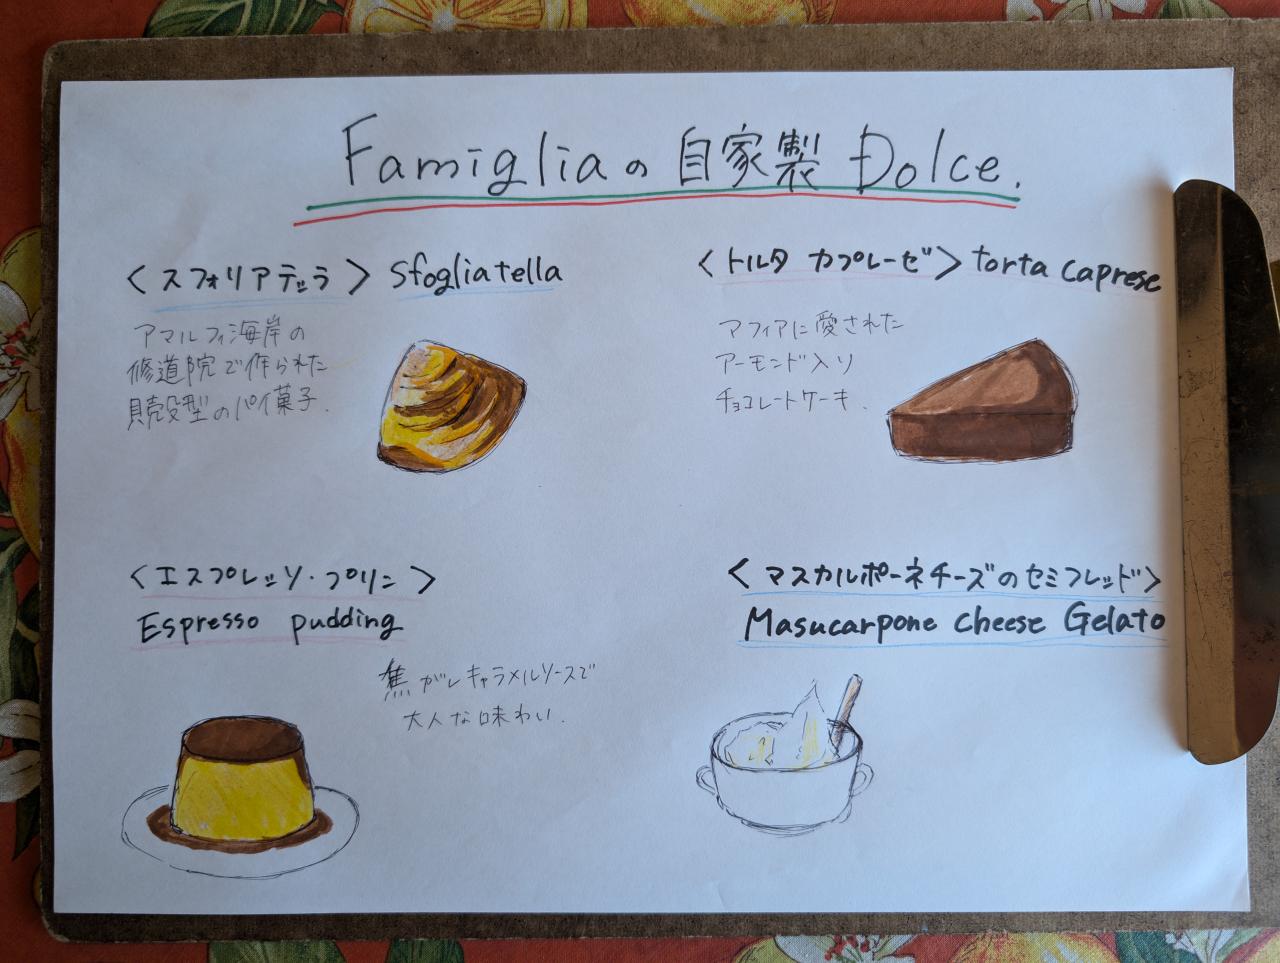 Famigliaの自家製 Dolce.
〈スフォリアテッラ〉 sfogliatella
アマルフィ海岸の
修道院で作られた
貝殻型のパイ菓子.
〈トルタ カプレーゼ〉torta caprese
マフィアに愛された
アーモンド入り
チョコレートケーキ.
〈エスプレッソ・プリン〉
Espresso pudding
焦がしキャラメルソースで
大人な味わい.
〈マスカルポーネチーズのセミフレッド〉
Masucarpone cheese Gelato